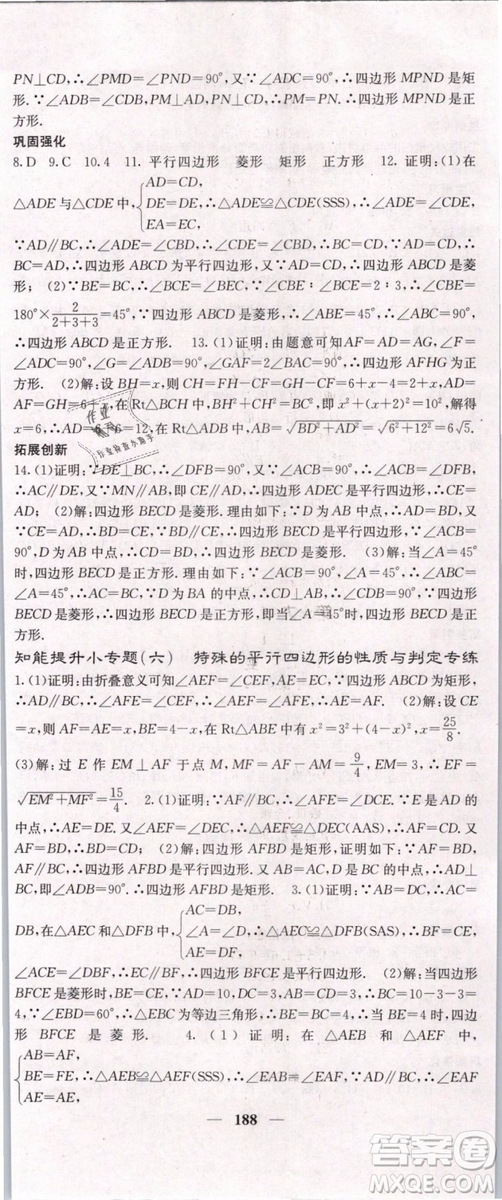 PN⊥CD,∴∠PMD=∠PND=90°,又∵∠ADC=90°,∴四边形 MPND 是矩
形.∵∠ADB=∠CDB,PM⊥AD,PN⊥CD,∴PM=PN.∴四边形 MPND 是正
方形.
巩固强化
8.D 9.C 10.4 11.平行四边形 菱形 矩形 正方形 12.证明:(1)在
AD=CD,
△ADE与△CDE中,{DE=DE,∴△ADE≌△CDE(SSS),∴∠ADE=∠CDE,
EA=EC,
∵AD∥BC,∴∠ADE=∠CBD,∴∠CDE=∠CBD,∴BC=CD,∵AD=CD,
∴BC=AD,∴四边形 ABCD 为平行四边形,∵AD=CD,∴四边形 ABCD 是菱
形;(2)∵BE=BC,∴∠BCE=∠BEC,∵∠CBE∶∠BCE=2∶3,∴∠CBE=
180°×2/(2+3+3)=45°,∵四边形 ABCD 是菱形,∴∠ABE=45°,∴∠ABC=90°,
∴四边形 ABCD 是正方形. 13.(1)证明:由题意可知AF=AD=AG,∠F=
∠G=∠ADB=∠ADC=90°,∠GAF=2∠BAC=90°,∴四边形 AFHG 为正
方形. (2)解:设 BH=x,则 CH=FH-CF=GH-CF=GB+BH-CF=x+2,
AF=GH=6+x,在 Rt△BCH 中,BH²+CH²=BC²,x²+(x+2)²=10²,解得
x=6,AD=6+6=12,在Rt△ABD中,AB=√(BD²+AD²)=√(6²+12²)=6√5.
拓展创新
14.(1)证明:∵DE⊥BC,∴∠DFB=90°,∵∠ACB=90°,∴∠ACB=∠DFB,
∴AC∥DE,∵MN∥AB,即 CE∥AD,∴四边形 ADEC 是平行四边形,∴CE=
AD; (2)解:四边形 BECD 是菱形.理由如下:∵D 为 AB 中点,∴AD=BD,
∵CE=AD,∴BD=CE,∵BD∥CE,∴四边形 BECD 是平行四边形,∵∠ACB
=90°,D为 AB 中点,∴CD=BD,∴四边形 BECD 是菱形. (3)解:当∠A=45°
时,四边形 BECD 是正方形.理由如下:∵∠ACB=90°,∠A=45°,∴∠ABC=
∠A=45°,∴AC=BC,∵D 为 BA 的中点,∴CD⊥AB,∴∠CDB=90°,∵四边
形 BECD 是菱形,∴四边形 BECD 是正方形.
知能提升小专题(六) 特殊的平行四边形的性质与判定专练
1.(1)证明:由折叠意义可知∠AEF=∠CEF,AE=EC,∵四边形ABCD为矩形,
∴∠AFE=∠CEF,∴∠AEF=∠AFE,∴AE=AF,∴AF=EC. (2)解:设CE
=x,则 AE=x,BE=4-x,在 Rt△ABE 中有 x²=3²+(4-x)²,∴x=25/8.
(3)解:过 E 作 EM⊥AF 于点 M,MF=AF-AM=9/4,在 Rt△EMF 中,EF=
√(EM²+MF²)=15/4. 2.(1)证明:∵AF∥BC,∴∠AFE=∠DCE.∵E 是 AD 的
中点,∴AE=DE.∵∠AEF=∠DEC,∴△AEF≌△DEC(AAS),∴AF=DC,
∵AF=BD,∴BD=CD; (2)解:四边形 AFBD 是矩形.证明如下:∵AF∥BD,
AF=BD,∴四边形 AFBD 是平行四边形.又∵AB=AC,D 是 BC 的中点,∴AD
⊥BC,即∠ADB=90°.∴四边形 AFBD 是矩形. 3.(1)证明:∵AB=CD,∴AC=
AC=DB,
DB,在△AEC 和△DFB 中,{∠A=∠D,∴△AEC≌△DFB(SAS),∴BF=CE,
AE=DF,
∠ACE=∠DBF,∴EC∥BF,∴四边形 BFCE 是平行四边形. (2)解:当四边形
BFCE是菱形时,BE=CE,∵AD=10,DC=3,AB=CD=3,∴BC=10-3-3=
4,∵∠EBD=60°,∴△CBE 为等边三角形,∴BE=BC=4,∴当 BE=4时,四边
形 BFCE 是菱形. 4.(1)证明:在△AEB 和△AEF 中,
AB=AF,
{BE=FE,∴△AEB≌△AEF(SSS),∴∠EAB=∠EAF,∵AD∥BC,∴∠EAF
AE=AE,
188
答案圈
MXQE.COM